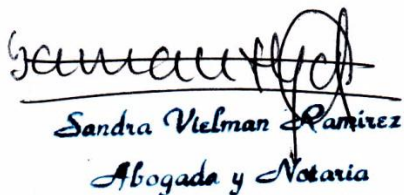 Sandra Vielman Ramírez
Abogada y Notaria